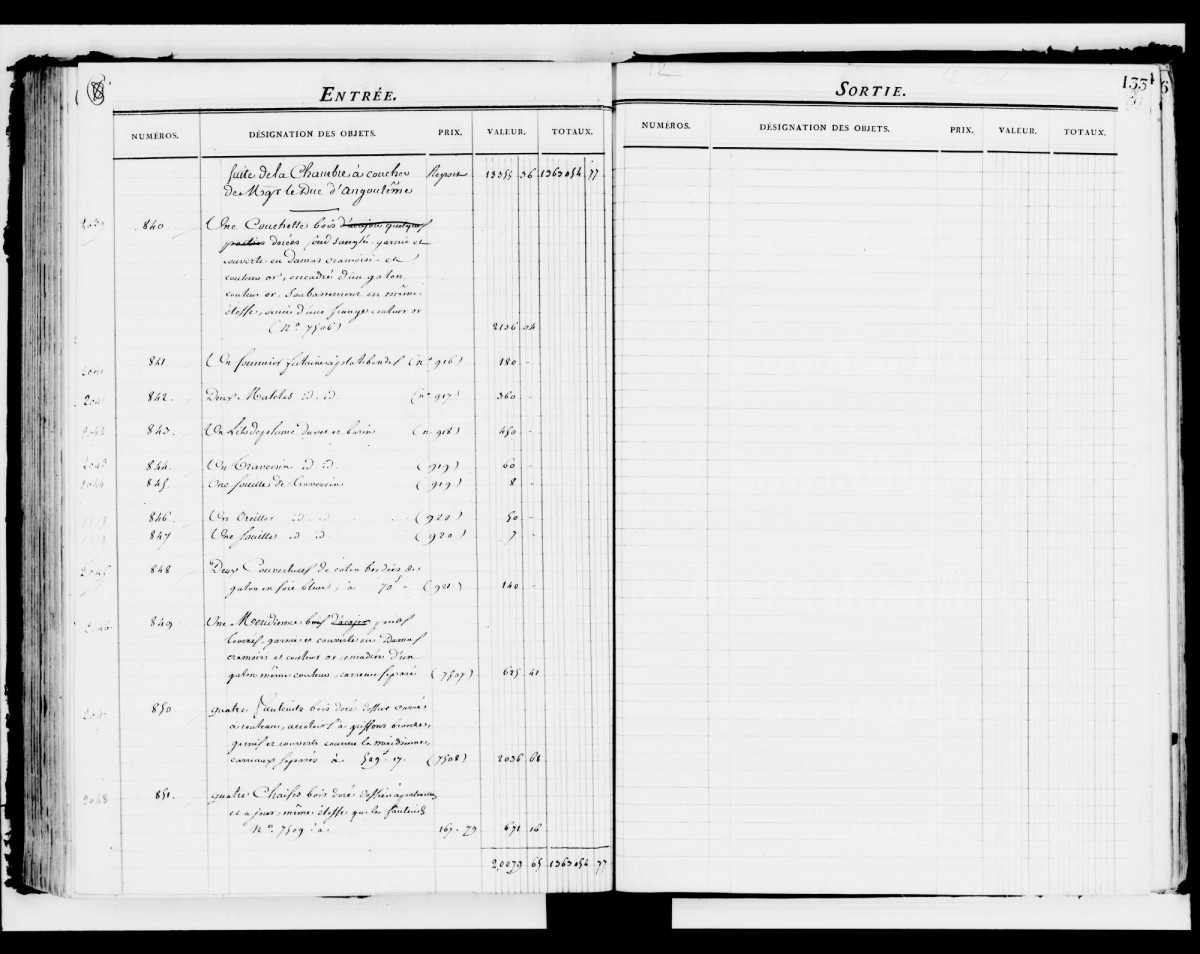 ENTRÉE.
NUMÉROS. DÉSIGNATION DES OBJETS. PRIX. VALEUR. TOTAUX.
Suite de la Chambre à coucher Report 13354 36 1363054 77
de Mgr le Duc d'angoulême
2039 840. Une Couchette bois d'acajou quelques
parties dorées, fond sanglé, garnie et
couverte en Damas cramoisi et
couleur or, encadrée d'un galon
couleur or, Soubassement en même
étoffe, ornée d'une frange couleur or
(No. 7506) 2136 04
2040 841. Un sommier futaine à platebandes (no 916) 180 -
2041 842. Deux Matelas id. id. (no. 917) 360 -
2042 843. Un Lit de plume duvet et basin (n. 918) 450 -
2043 844. Un Traversin id. id. (919) 60 -
2044 845. Une souille de traversin (919) 8 -
846. Un Oreiller id. id. (920) 50 -
847 Une souille id. id. (920) 7 -
2045 848 Deux Couvertures de coton bordées de
galon en soie bleue, à 70f - (921) 140 -
2046 849 Une Méridienne bois d'acajou pieds
tournés, garnie et couverte en Damas
cramoisi et couleur or, encadrée d'un
galon même couleur, carreau séparé (7507) 685 41
2047 850 quatre Fauteuils bois doré dossier carré
à rouleau, accotoirs à griffons bronzés,
garnis et couverts comme la méridienne,
carreaux séparés à 509f. 17. (7508) 2036 68
2048 851. quatre Chaises bois doré dossier
et à jour, même étoffe que les fauteuils
No. 7509 à 167. 79 671 16
20079 65 1363054 77
SORTIE.
133
NUMÉROS. DÉSIGNATION DES OBJETS. PRIX. VALEUR. TOTAUX.